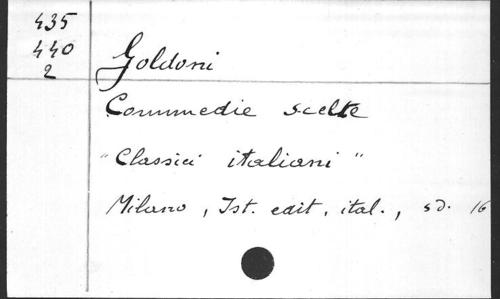 435
440
2
Goldoni
Commedie scelte
"Classici italiani"
Milano, Ist. edit. ital., sd. 16